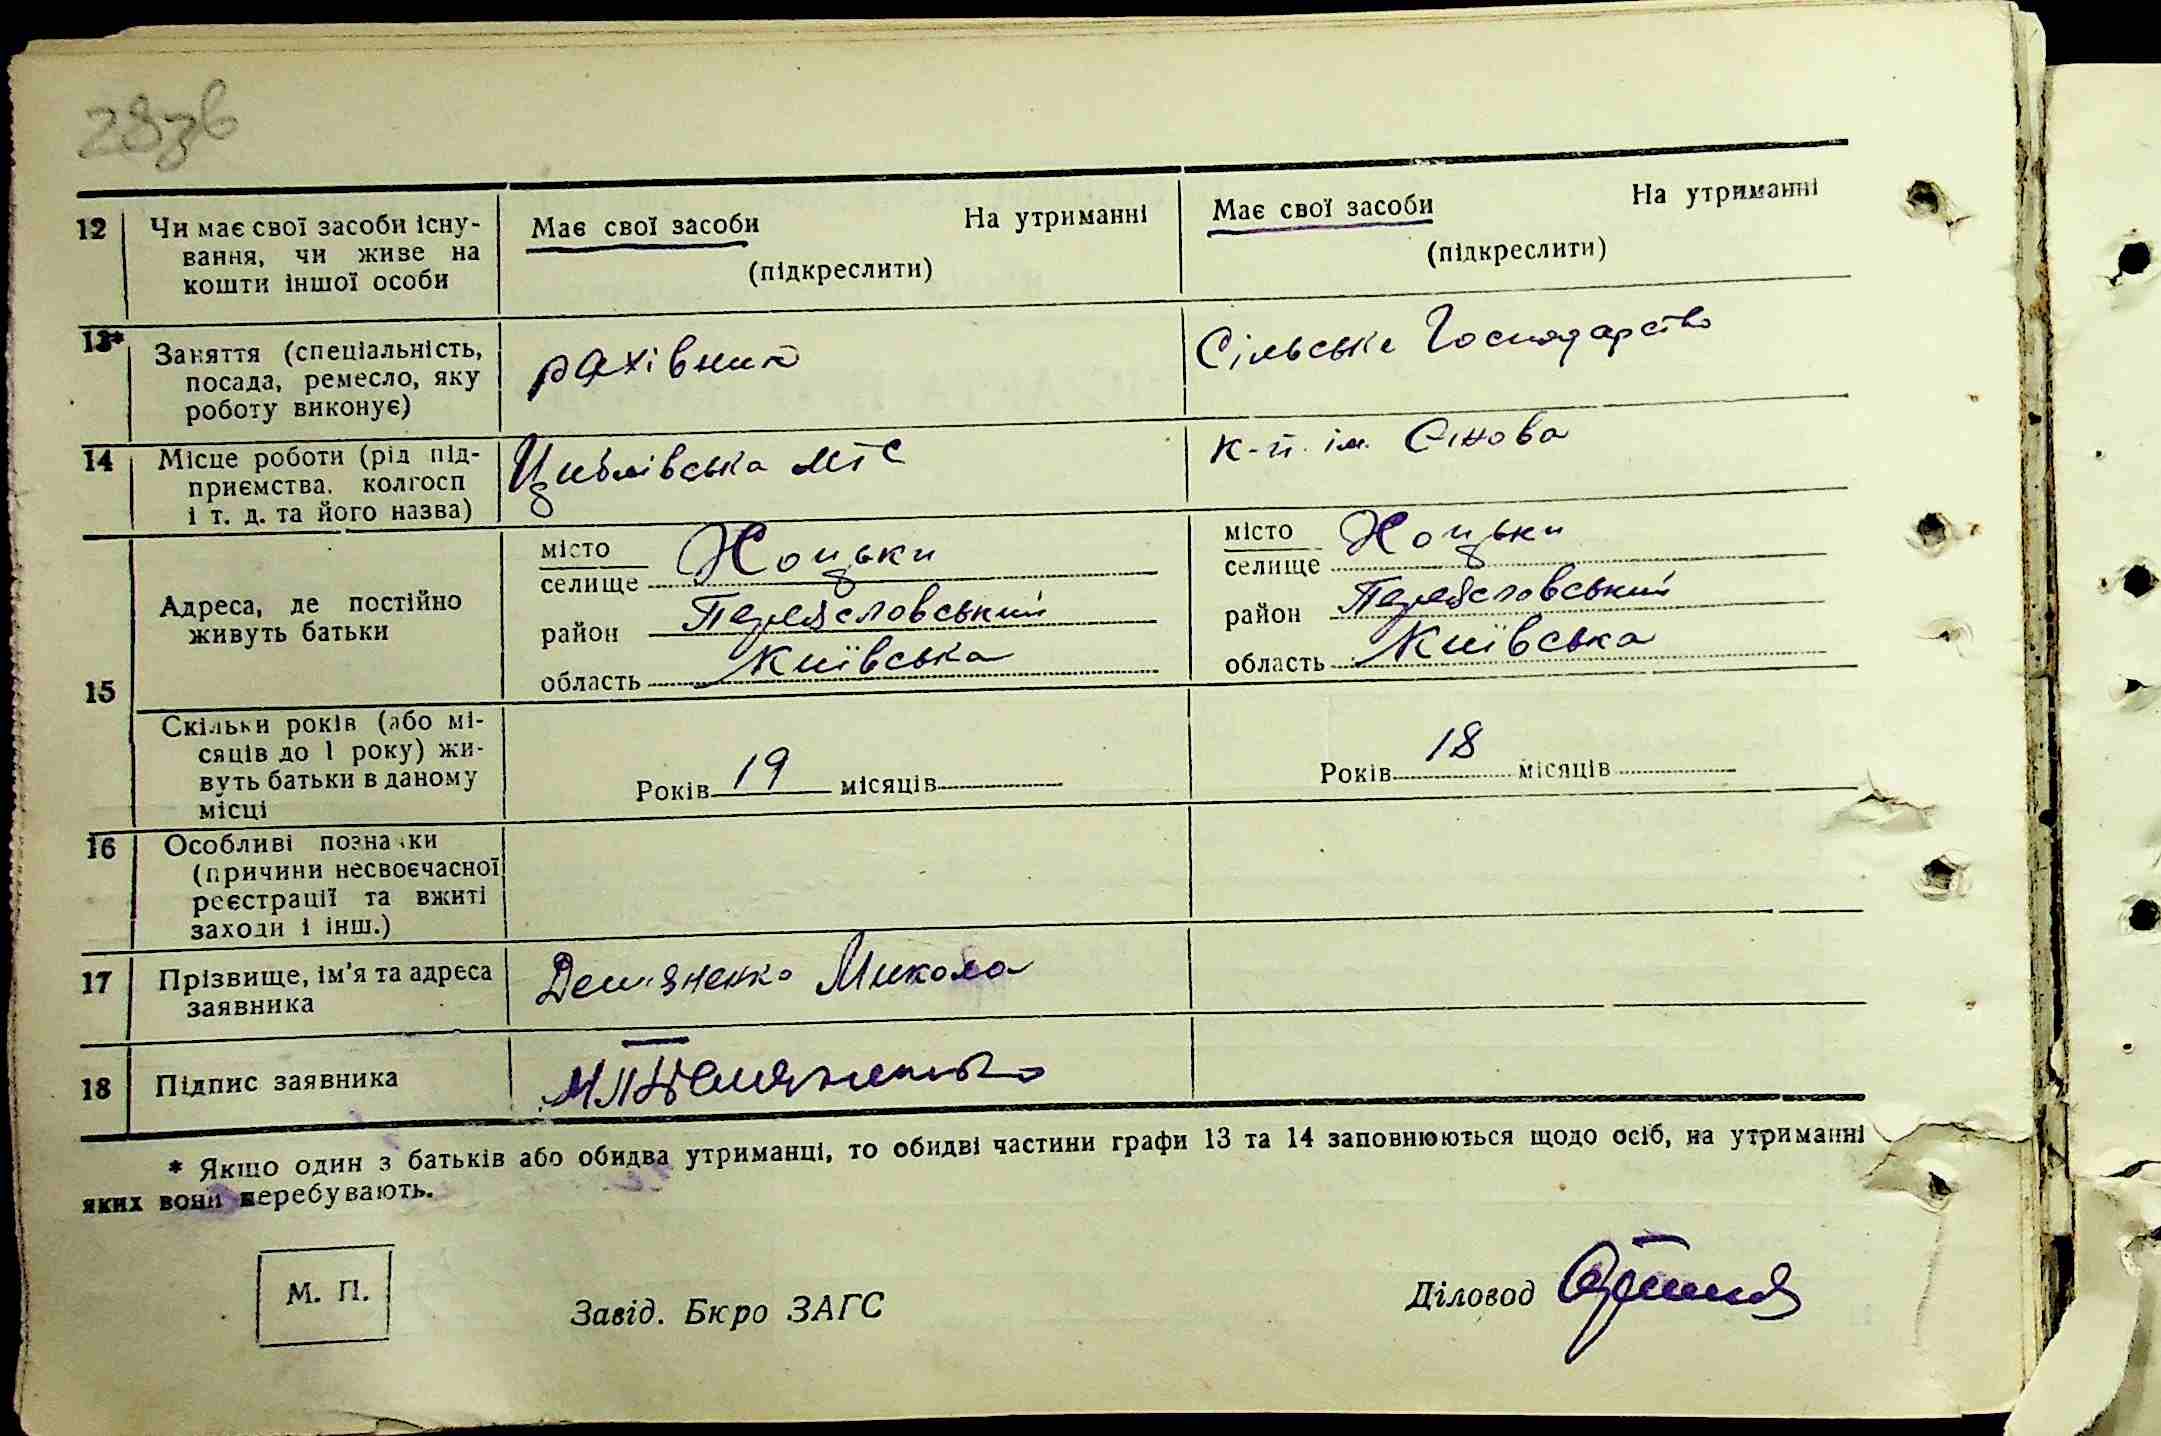 283б
12 Чи має свої засоби існу- Має свої засоби На утриманні Має свої засоби На утриманні
вання, чи живе на (підкреслити) (підкреслити)
кошти іншої особи
13* Заняття (спеціальність, рахівник Сільське Господарство
посада, ремесло, яку
роботу виконує)
14 Місце роботи (рід під- Циблівська МТС к-п. ім.
приємства, колгосп
і т. д. та його назва)
15 Адреса, де постійно місто Хоцьки місто Хоцьки
живуть батьки селище селище
район Переяславський район Переяславський
область Київська область Київська
Скільки років (або мі-
сяців до 1 року) жи-
вуть батьки в даному Років 19 місяців Років 18 місяців
місці
16 Особливі позначки
(причини несвоєчасної
реєстрації та вжиті
заходи і інш.)
17 Прізвище, ім'я та адреса Дем'яненко Микола
заявника
18 Підпис заявника
* Якщо один з батьків або обидва утриманці, то обидві частини графи 13 та 14 заповнюються щодо осіб, на утриманні
яких вони перебувають.
М. П.
Завід. Бюро ЗАГС Діловод